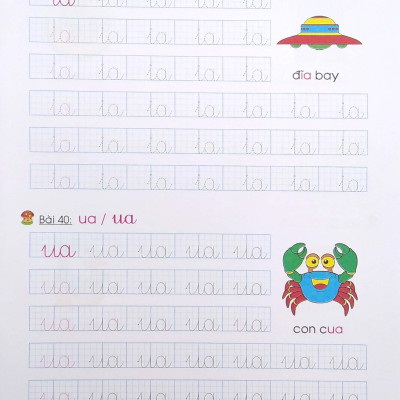 ia
ia ia ia ia ia ia
ia ia ia ia ia ia
đĩa bay
ia ia ia ia ia ia ia
ia ia ia ia ia ia ia
ia ia ia ia ia ia ia
Bài 40: ua / ua
ua ua ua ua ua ua
ua ua ua ua ua ua
ua ua ua ua ua ua
con cua
ua ua ua ua ua ua ua
ua ua ua ua ua ua ua